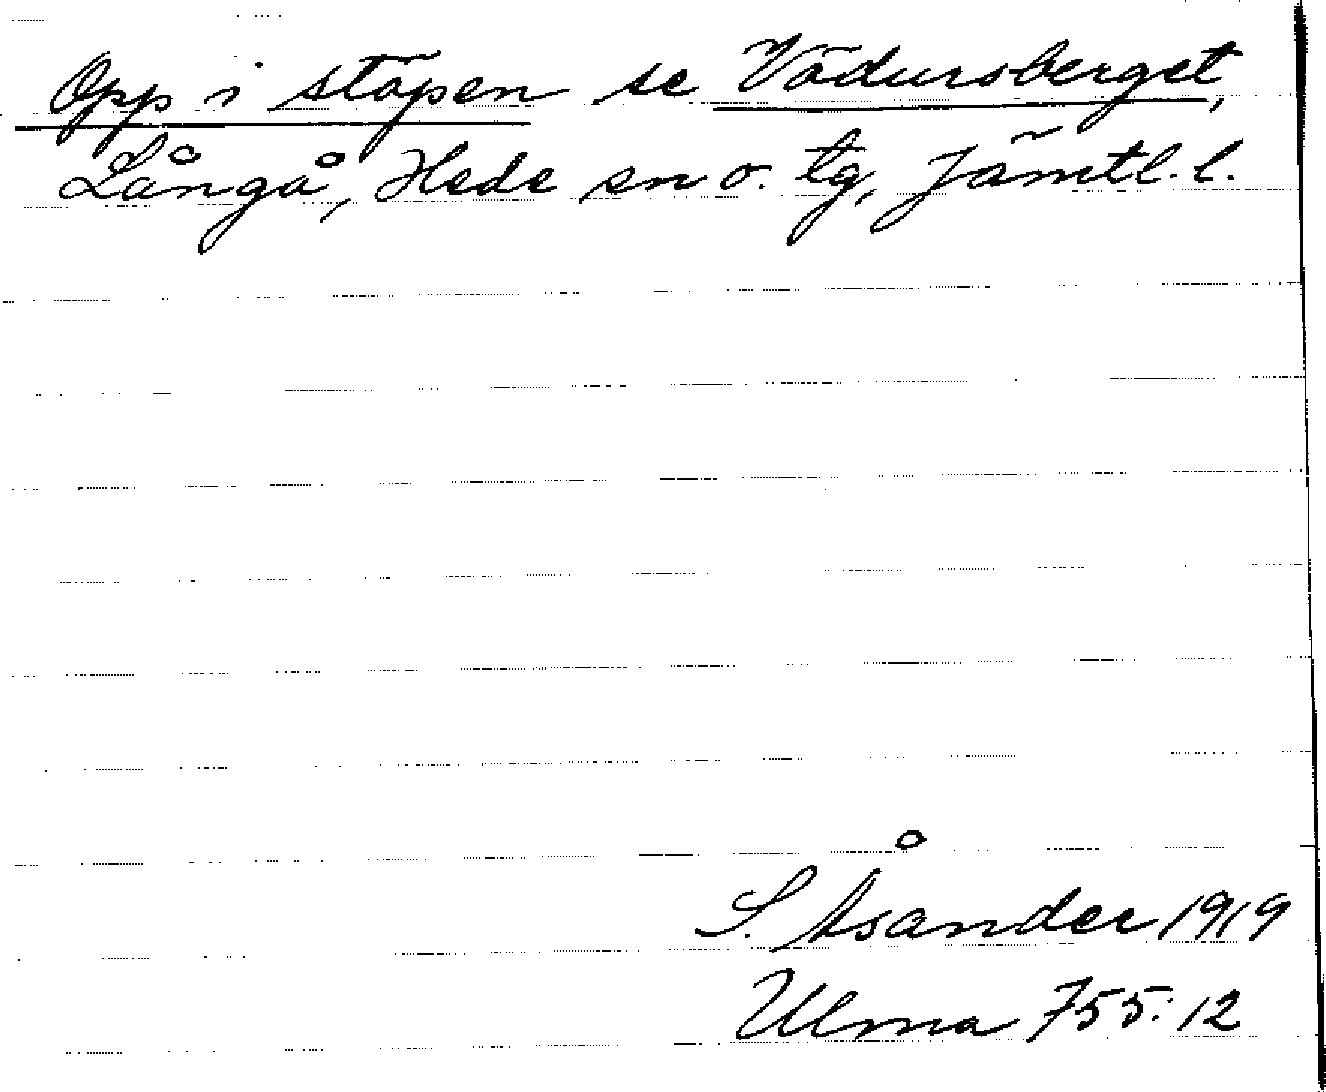 Opp i stöpen se Vädursberget,
Långå, Hede sn o. tg, Jämtl. l.
S. Åsander 1919
Ulma 755:12